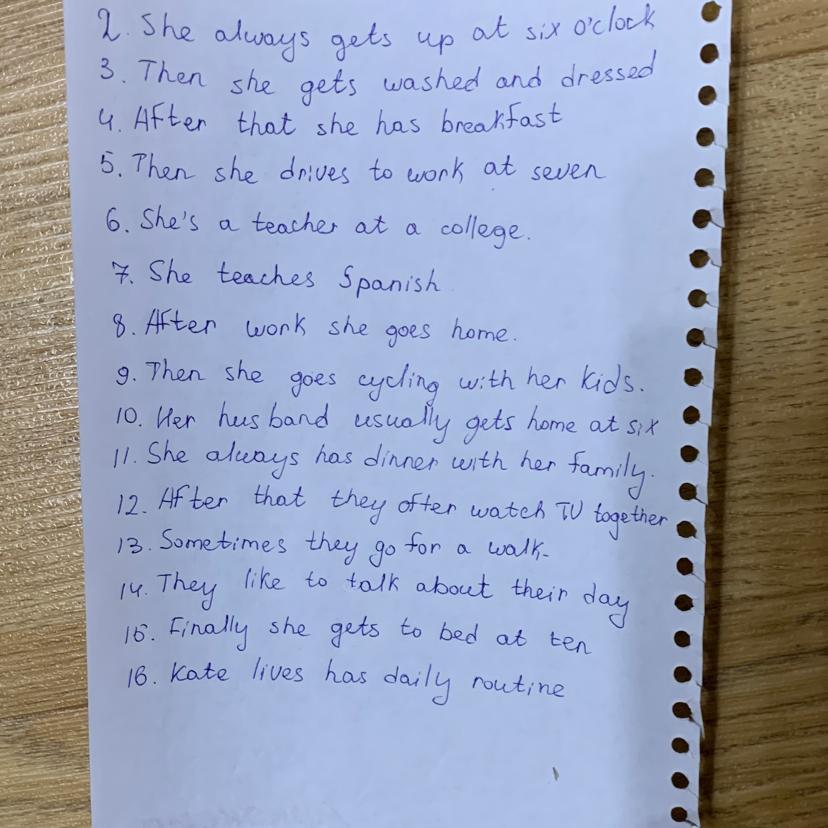 2. She always gets up at six o'clock
3. Then she gets washed and dressed
4. After that she has breakfast
5. Then she drives to work at seven
6. She's a teacher at a college.
7. She teaches Spanish
8. After work she goes home.
9. Then she goes cycling with her kids.
10. Her husband usually gets home at six
11. She always has dinner with her family.
12. After that they ofter watch TV together
13. Sometimes they go for a walk.
14. They like to talk about their day
15. Finally she gets to bed at ten
16. Kate lives has daily routine